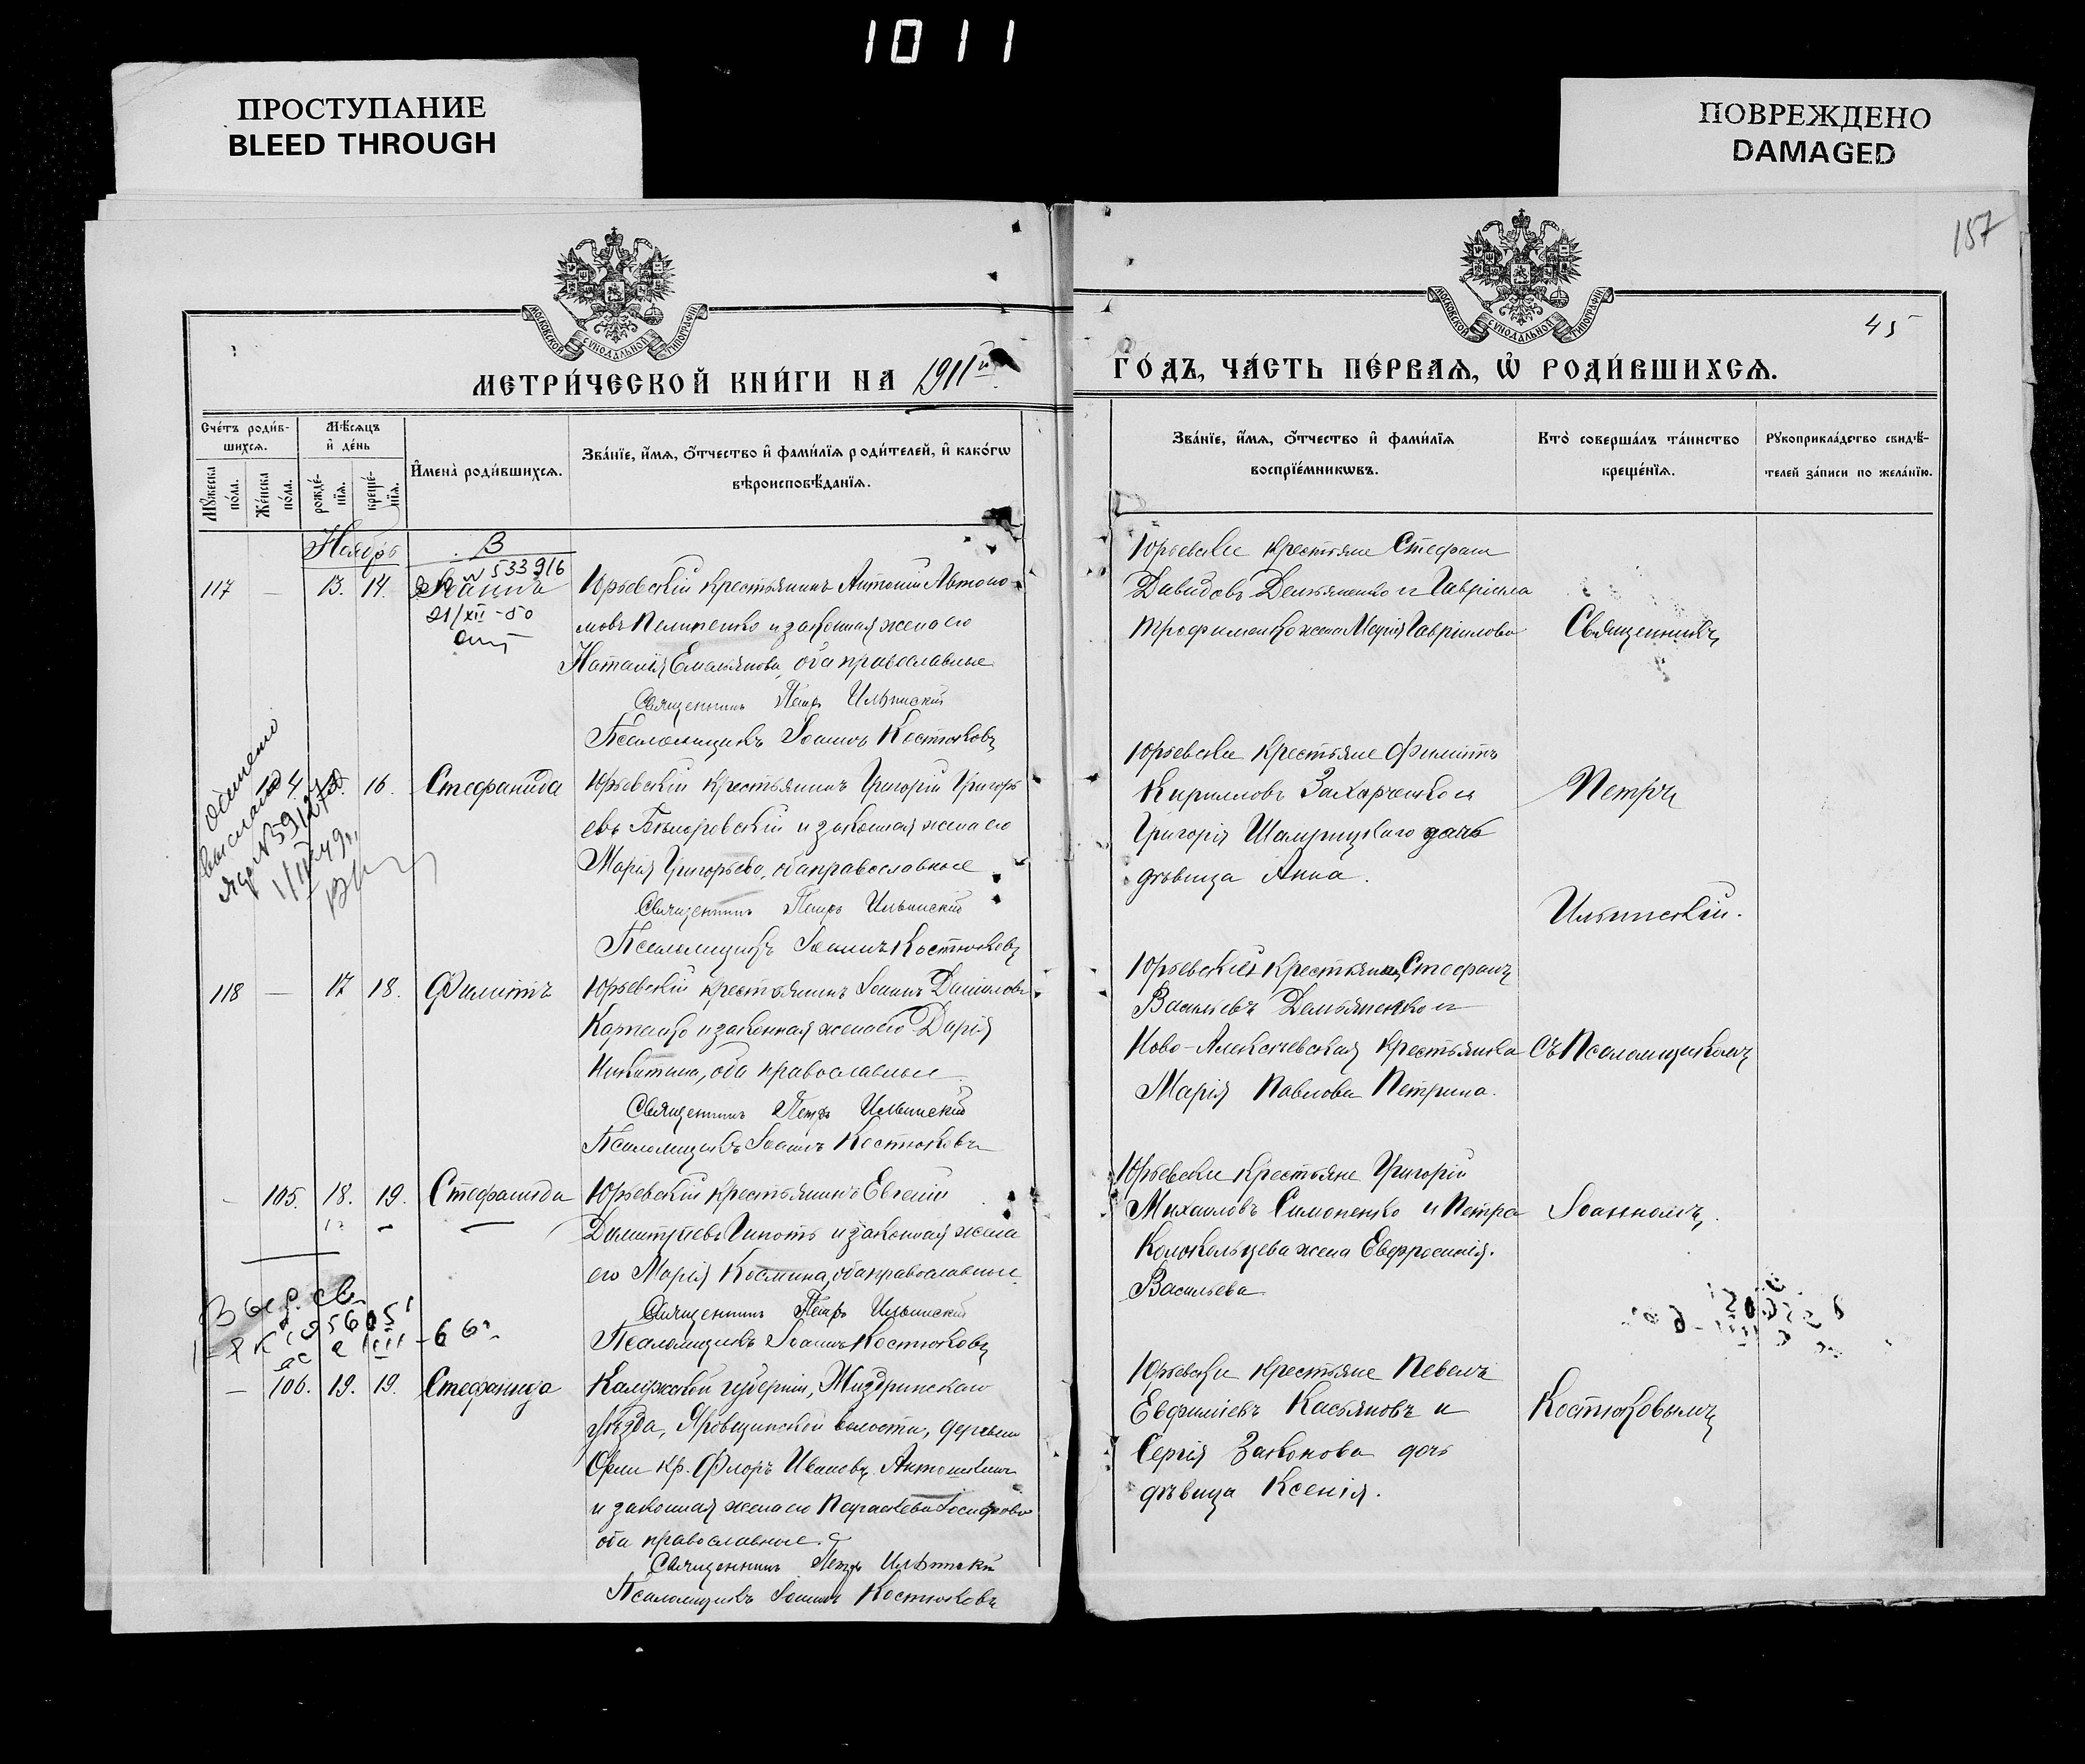 1011
ПРОСТУПАНИЕ
BLEED THROUGH
ПОВРЕЖДЕНО
DAMAGED
157
45
МОСКОВСКОЙ СУНОДАЛЬНОЙ ТИПОГРАФІИ
МОСКОВСКОЙ СУНОДАЛЬНОЙ ТИПОГРАФІИ
МЕТРИ́ЧЕСКОЙ КНИ́ГИ НА 1911й
ГО́ДЪ, ЧА́СТЬ ПЕ́РВАѦ, Ѡ҆ РОДИ́ВШИХСѦ.
Сче́тъ роди́в-
шихсѧ.
Мѣ́сѧцъ
и҆ де́нь
Мꙋ́жеска
по́ла.
Же́нска
по́ла.
рожде́-
нїѧ.
креще́-
нїѧ.
И҆мена̀ роди́вшихсѧ.
Зва́нїе, и҆́мѧ, ѻ҆́тчество и҆ фами́лїѧ роди́телей, и҆ како́гѡ
вѣроисповѣ́данїѧ.
Зва́нїе, и҆́мѧ, ѻ҆́тчество и҆ фами́лїѧ
воспрїе́мникѡвъ.
Кто̀ соверша́лъ та́инство
креще́нїѧ.
Рꙋкоприкла́дство свидѣ́-
телей за́писи по жела́нїю.
Ноябрь
В
N 533916
117 — 13. 14.
21/XII-50
Юрьевскій крестьянинъ Антоній Автоно-
мовъ Пелипенко и законная жена его
Наталія Емельянова, оба православные
Священникъ Петръ Ильинскій
Псаломщикъ Іоаннъ Костюковъ
Юрьевскіе крестьяне Стефанъ
Давидовъ Демьяненко и Гавріила
Трофименко жена Марія Гавріилова
Священникъ
выслано
1/IV 49г.
16. Стефанида
Юрьевскій крестьянинъ Григорій Григорь
евъ и законная жена его
Марія Григорьева, оба православные
Священникъ Петръ Ильинскій
Псаломщикъ Іоаннъ Костюковъ
Юрьевскіе крестьяне Филиппъ
Кирилловъ Захарченко и
Григорія дочь
дѣвица Анна.
Петръ
Ильинскій.
118 — 17 18. Филиппъ
Юрьевскій крестьянинъ Іоаннъ Даниловъ
Карпенко и законная жена его Дарія
Никитина, оба православные
Священникъ Петръ Ильинскій
Псаломщикъ Іоаннъ Костюковъ
Юрьевскій крестьянинъ Стефанъ
Васильевъ Демьяненко и
Ново-Алексѣевская крестьянка
Марія Павлова Петрина.
съ Псаломщикомъ
— 105. 18. 19. Стефанида
Юрьевскій крестьянинъ Евгеній
Димитріевъ и законная жена
его Марія Космина, оба православные
Священникъ Петръ Ильинскій
Псаломщикъ Іоаннъ Костюковъ
Юрьевскіе крестьяне Григорій
Михаиловъ Симоненко и Петра
Колокольцева жена Евфросинія
Васильева
Іоанномъ
— 106. 19. 19. Стефанида
Калужской губерніи, Жиздринскаго
уѣзда, волости, деревни
кр. Флоръ Ивановъ Антошкинъ
и законная жена его Параскева Іосифова
оба православные.
Священникъ Петръ Ильинскій
Псаломщикъ Іоаннъ Костюковъ
Юрьевскіе крестьяне Павелъ
Евфиміевъ Касьяновъ и
Сергія Законова дочь
дѣвица Ксенія.
Костюковымъ